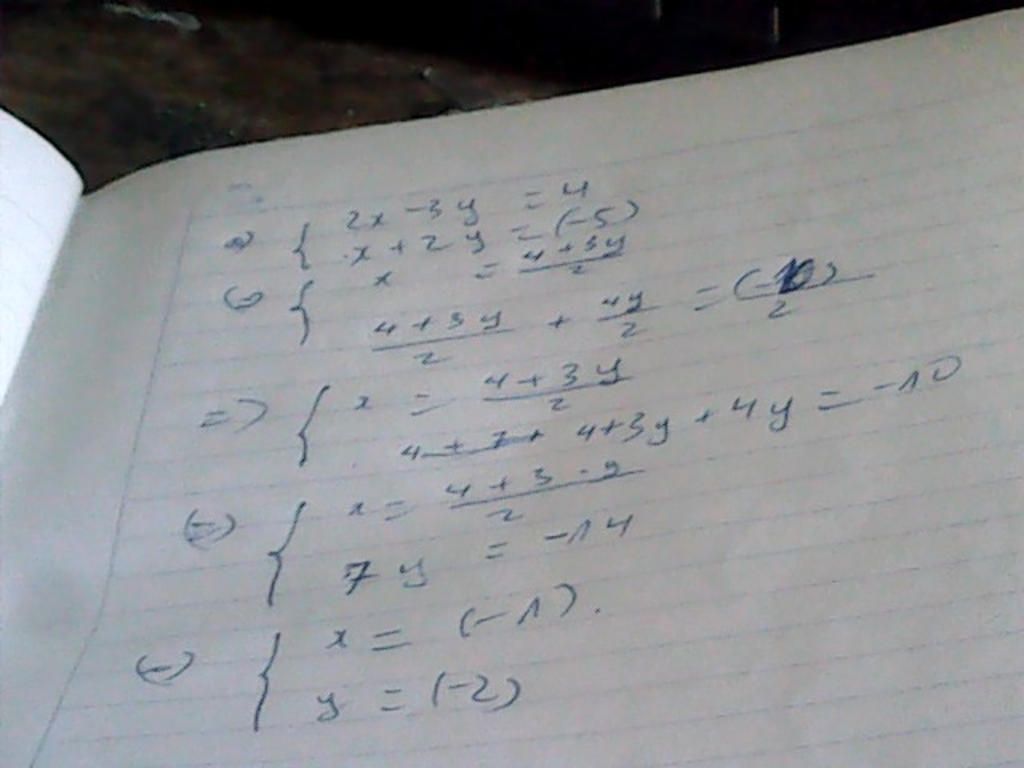 a) { 2x - 3y = 4
x + 2y = (-5)
(=) { x = \frac{4+3y}{2}
\frac{4+3y}{2} + \frac{4y}{2} = \frac{(-10)}{2}
=> { x = \frac{4+3y}{2}
4+3y + 4y = -10
(=) { x = \frac{4+3.y}{2}
7y = -14
(=) { x = (-1).
y = (-2)